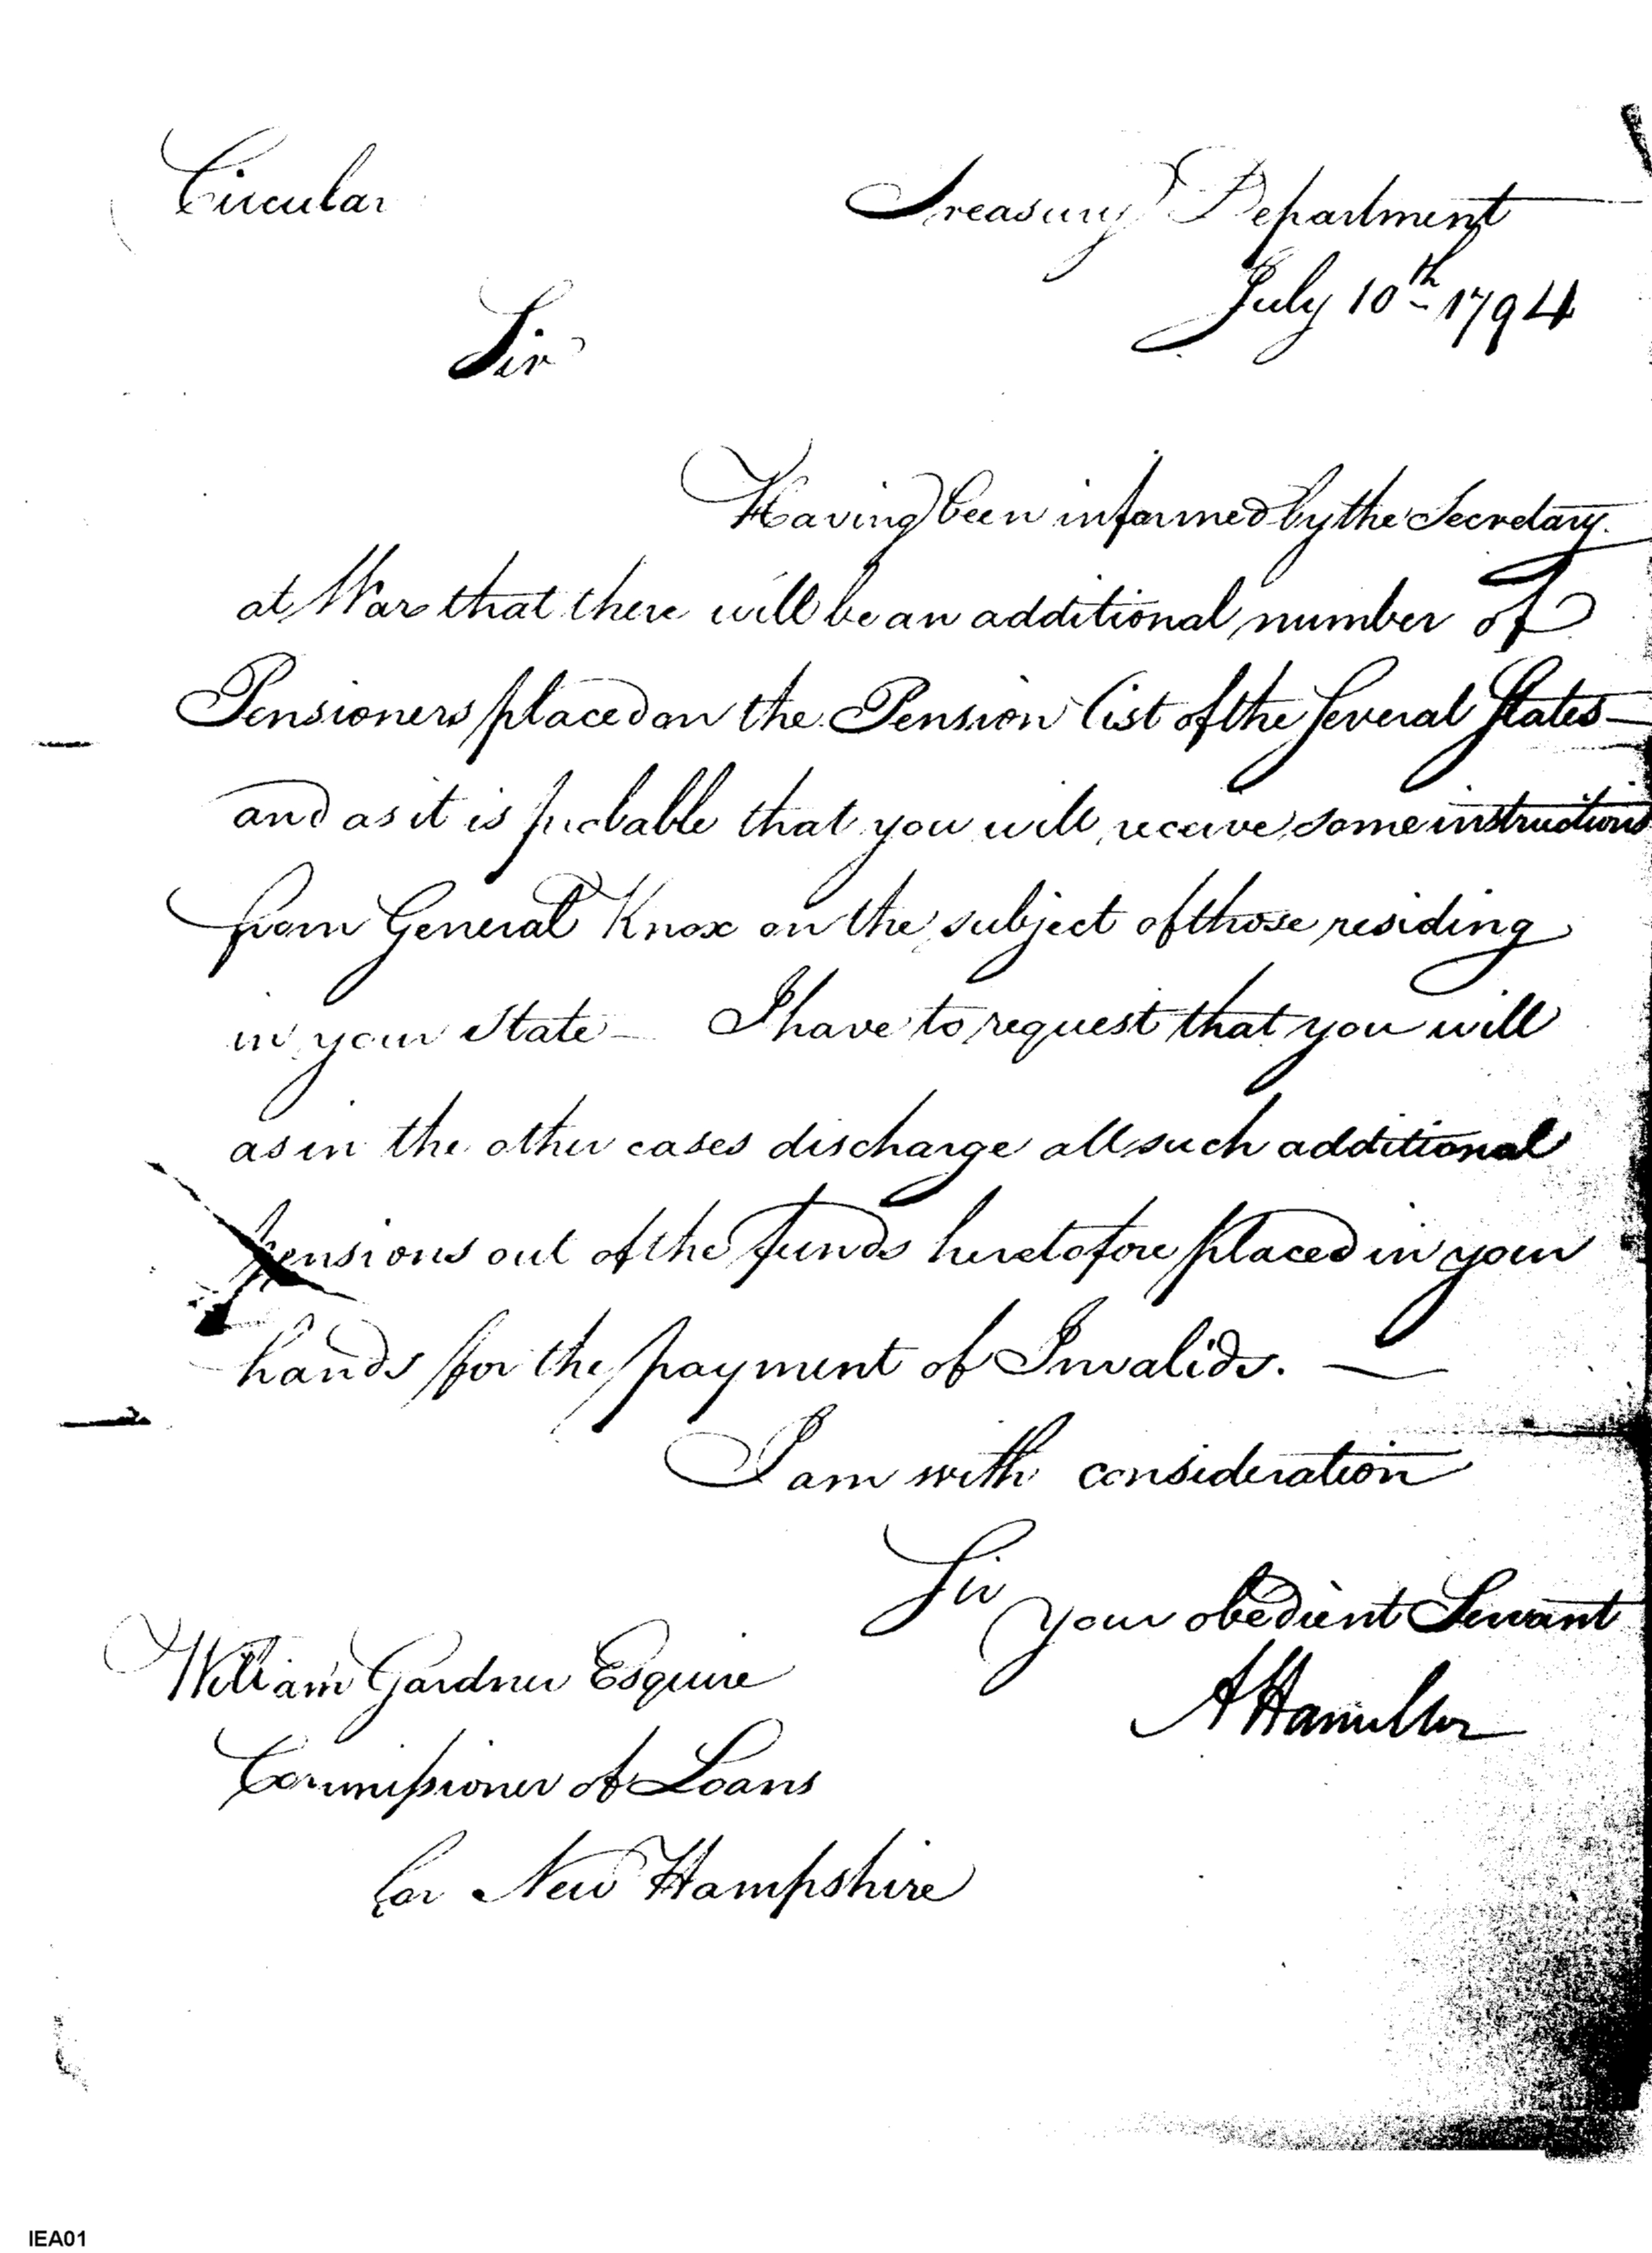 Circular
Treasury Department
July 10th 1794
Sir
Having been informed by the Secretary
at War that there will be an additional number of
Pensioners placed on the Pension list of the Several States
and as it is probable that you will receive some instructions
from General Knox on the subject of those residing
in your State — I have to request that you will
as in the other cases discharge all such additional
pensions out of the funds heretofore placed in your
hands for the payment of Invalids. —
I am with consideration
Sir
your obedient Servant
A Hamilton
William Gardner Esquire
Commissioner of Loans
for New Hampshire
IEA01